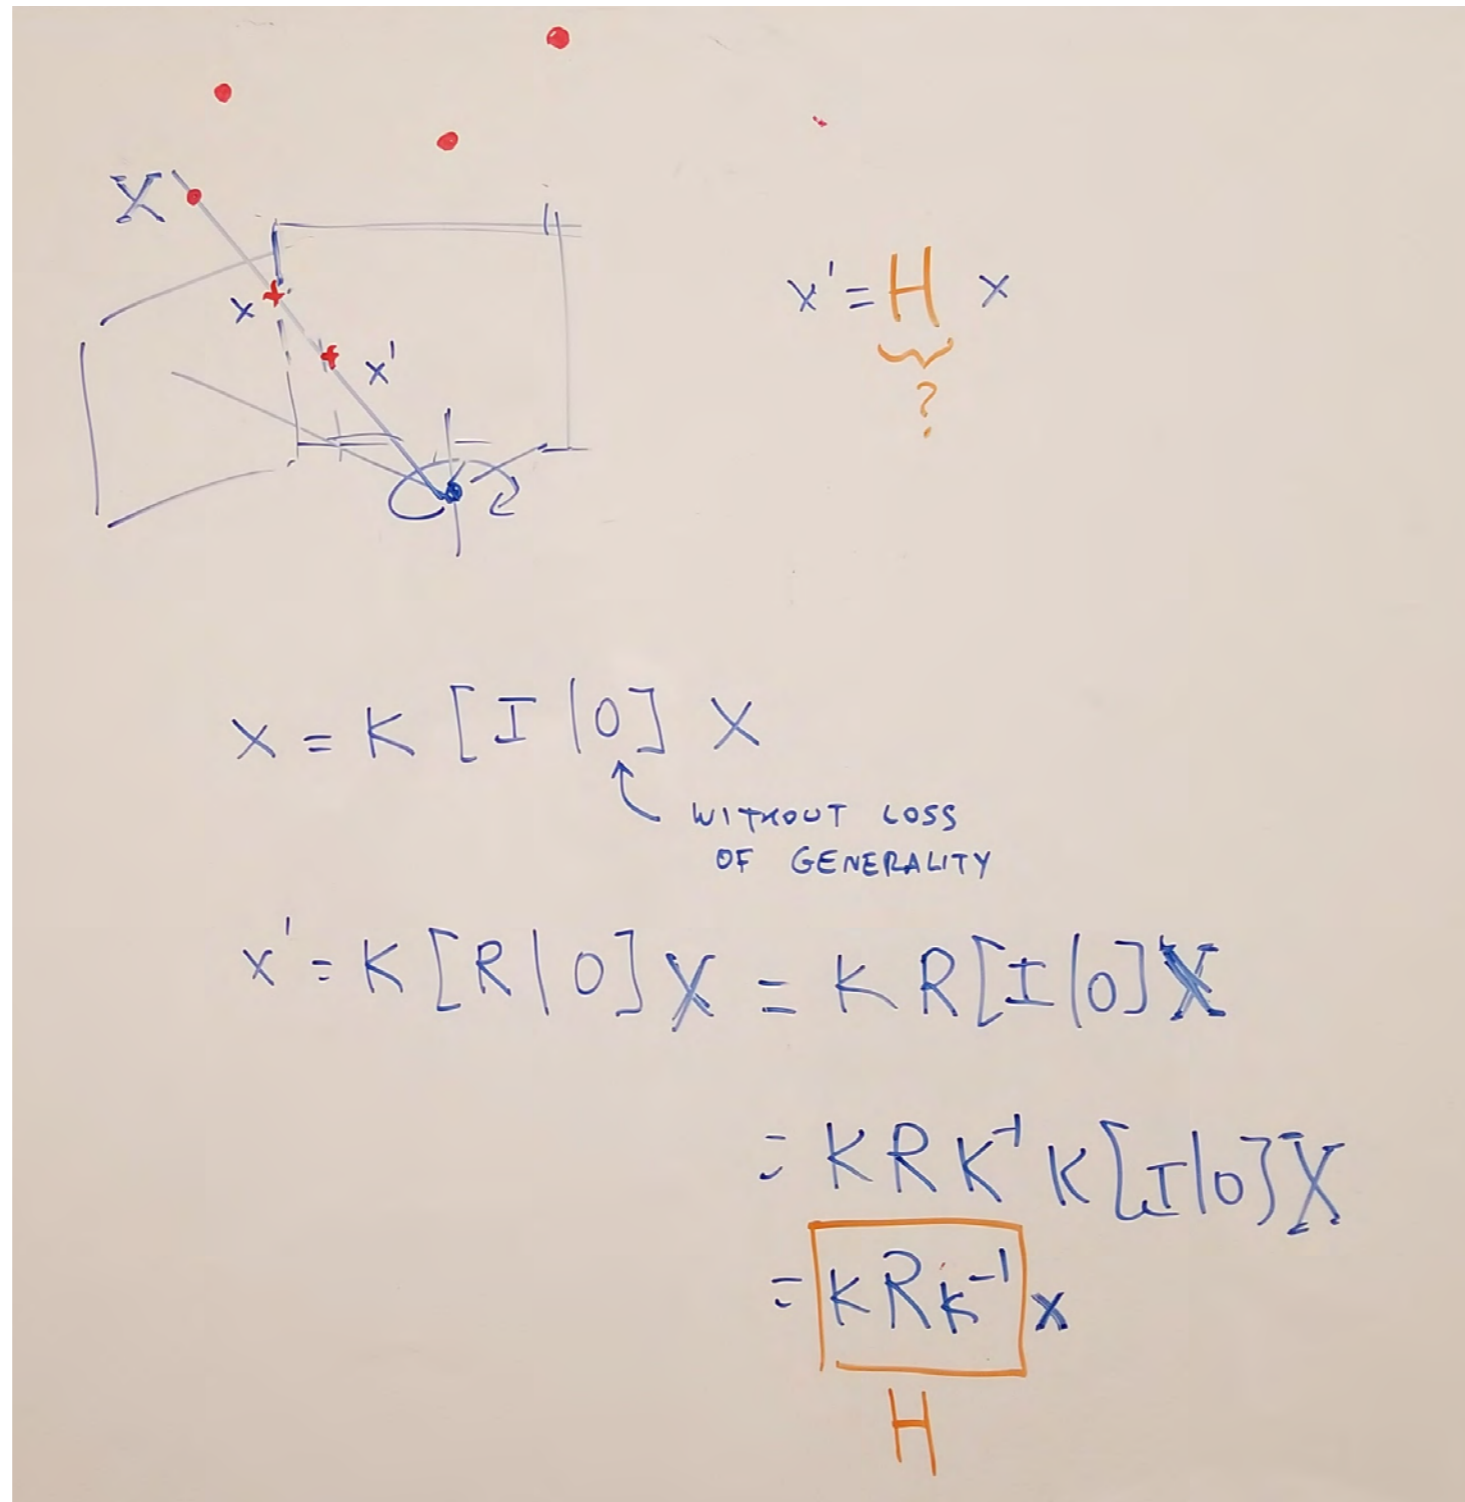 X
x
x'
x' = H x
?
x = K [I | 0] X
WITHOUT LOSS
OF GENERALITY
x' = K [R | 0] X = K R [I | 0] X
= K R K⁻¹ K [I | 0] X
= K R K⁻¹ x
H